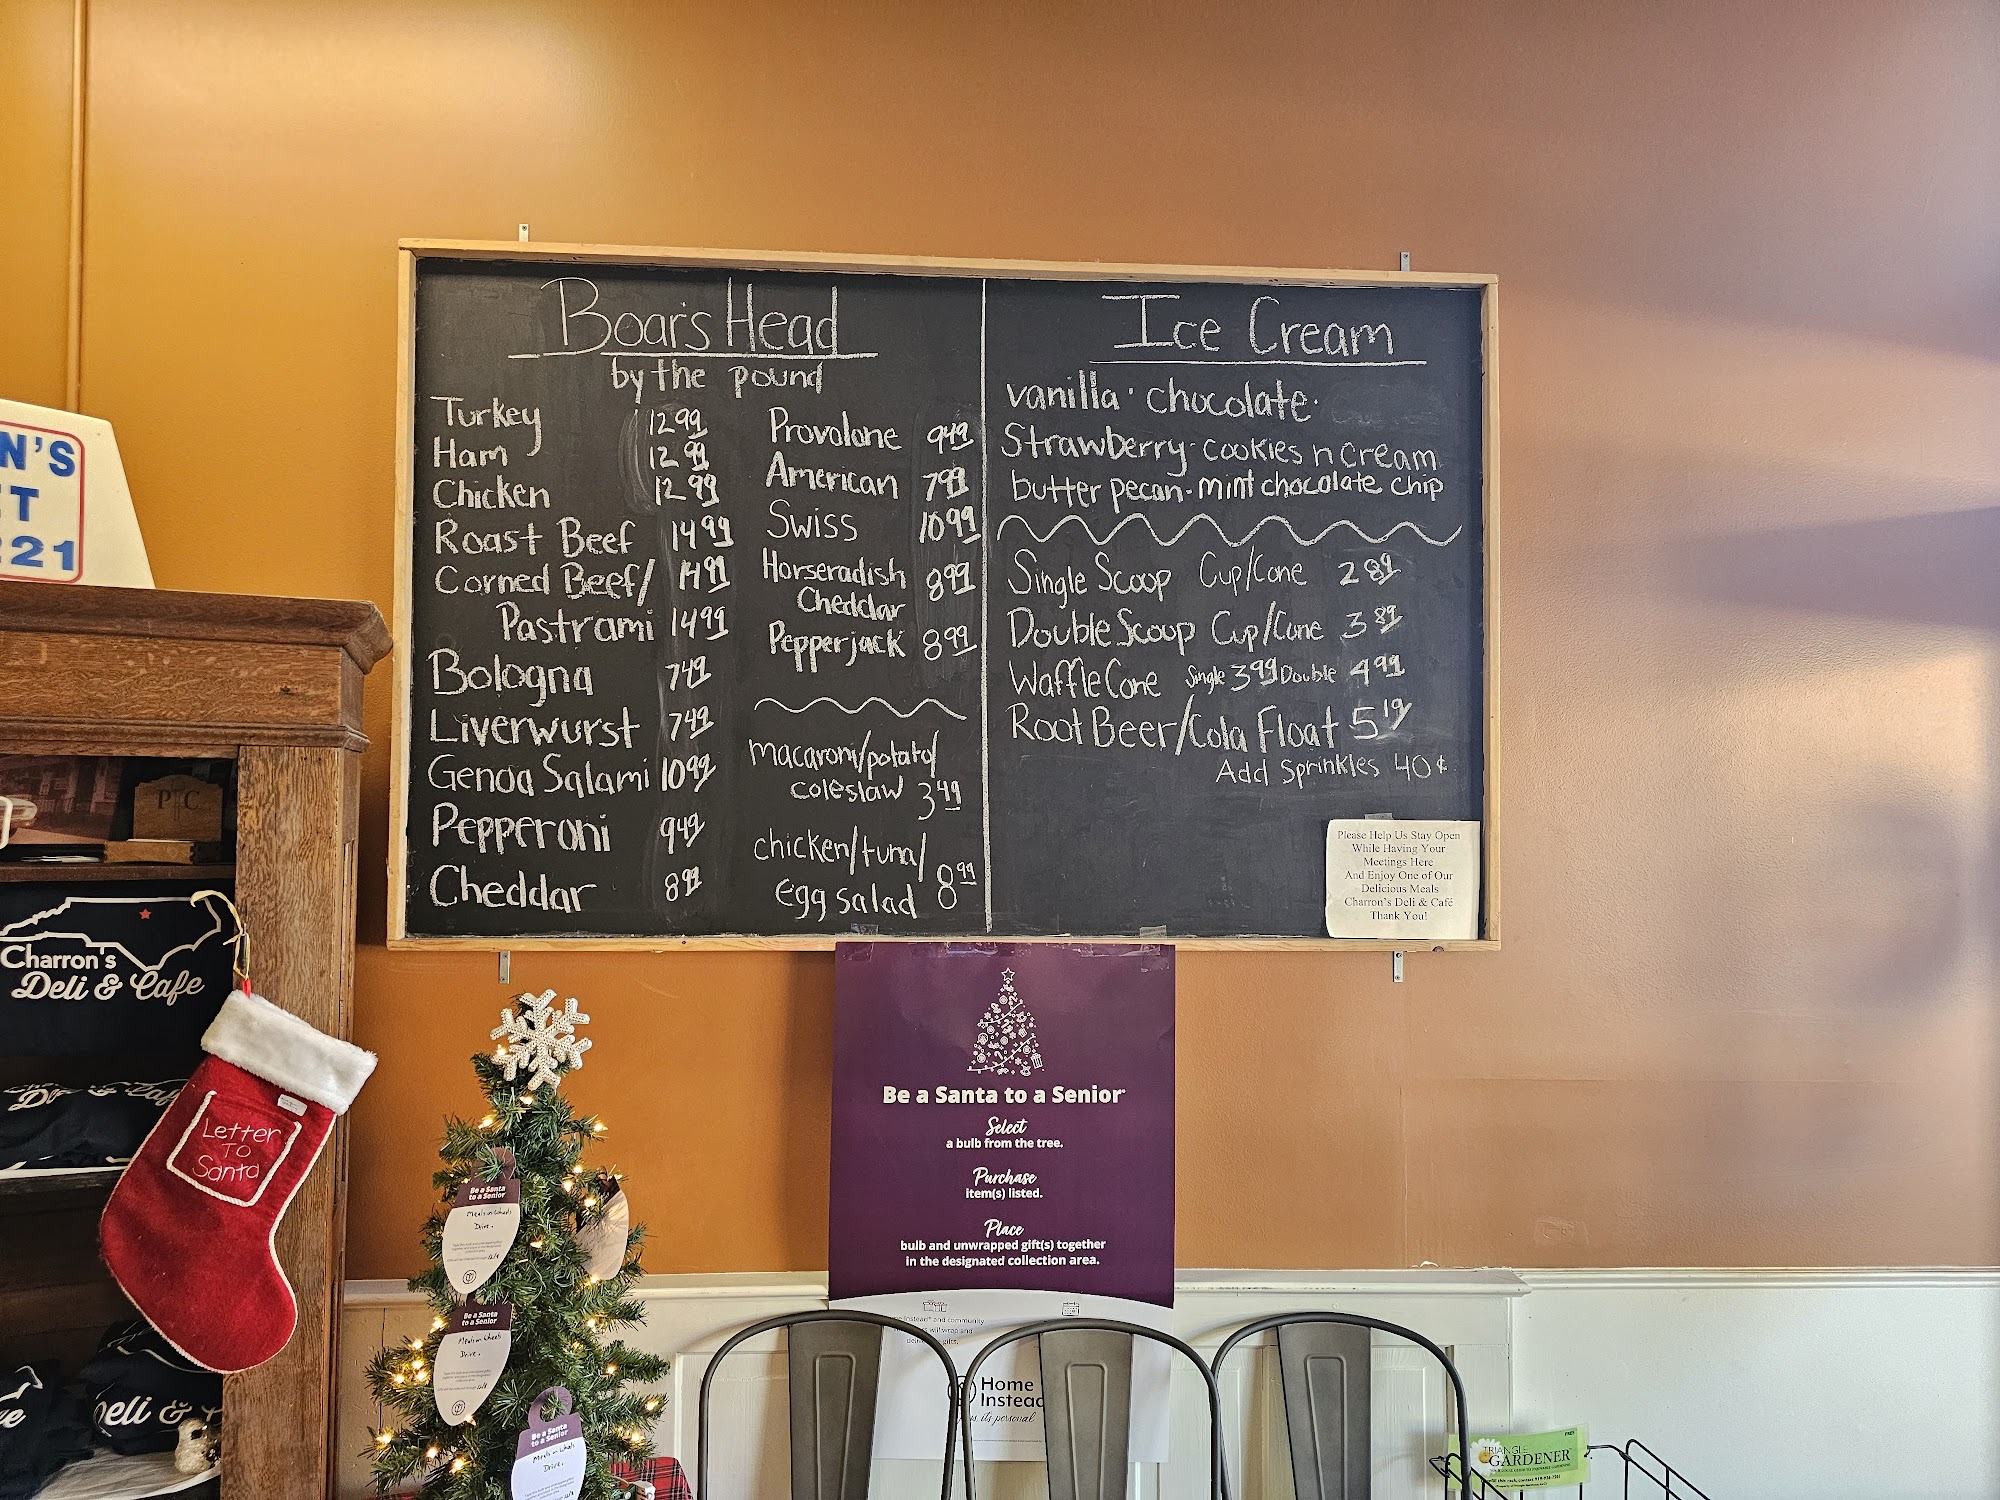 Boar's Head
by the pound
Turkey 12.99
Ham 12.99
Chicken 12.99
Roast Beef 14.99
Corned Beef/ 14.99
Pastrami 14.99
Bologna 7.49
Liverwurst 7.49
Genoa Salami 10.99
Pepperoni 9.49
Cheddar 8.99
Provolone 9.49
American 7.99
Swiss 10.99
Horseradish 8.99
Cheddar
Pepperjack 8.99
macaroni/potato/
coleslaw 3.49
chicken/tuna/
egg salad 8.99
Ice Cream
vanilla · chocolate ·
Strawberry · cookies n cream
butter pecan · mint chocolate chip
Single Scoop Cup/Cone 2.89
Double Scoop Cup/Cone 3.89
Waffle Cone Single 3.99 Double 4.99
Root Beer/Cola Float 5.19
Add Sprinkles 40¢
Please Help Us Stay Open
While Having Your
Meetings Here
And Enjoy One of Our
Delicious Meals
Charron's Deli & Café
Thank You!
N'S
T
221
P C
Charron's
Deli & Cafe
Letter
To
Santa
eli &
Be a Santa
to a Senior
Meals on Wheels
Drive.
Be a Santa
to a Senior
Meals on Wheels
Drive.
Be a Santa
to a Senior
Meals on Wheels
Drive.
Be a Santa to a Senior
Select
a bulb from the tree.
Purchase
item(s) listed.
Place
bulb and unwrapped gift(s) together
in the designated collection area.
Instead® and community
will wrap and
gifts.
Home
Instead
it's personal
TRIANGLE
GARDENER
FREE